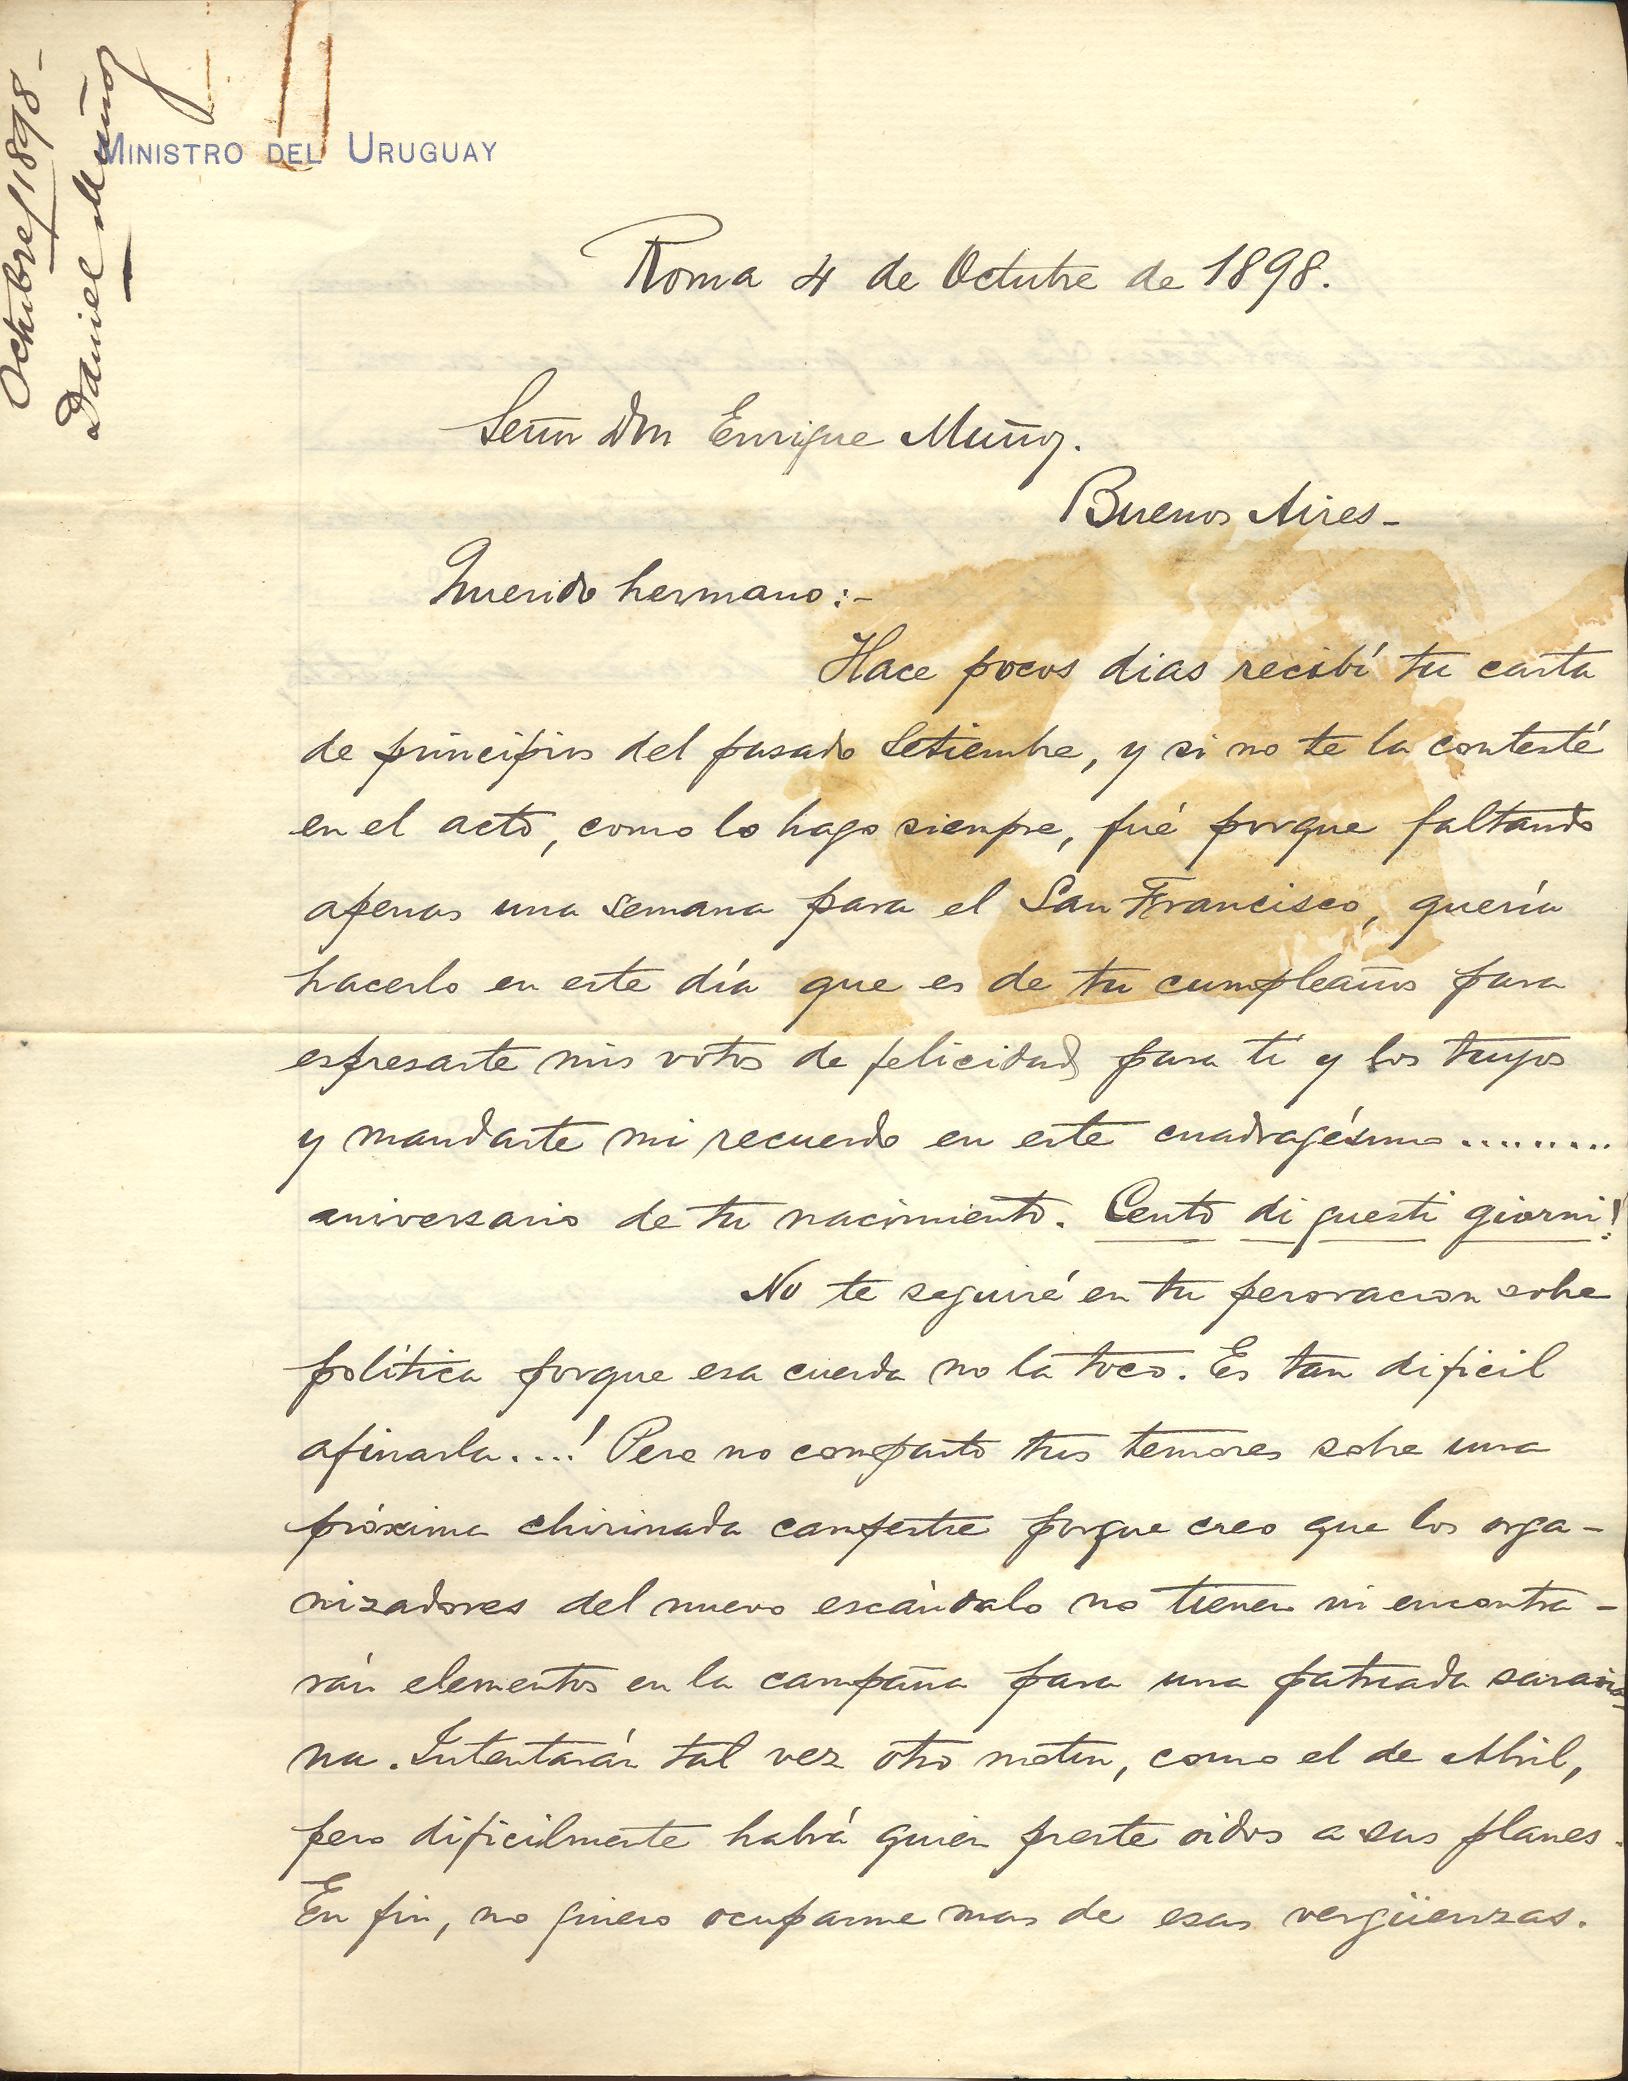 Octubre/1898-
Daniel Muñoz
MINISTRO DEL URUGUAY
Roma 4 de Octubre de 1898.
Señor Don Enrique Muñoz.
Buenos Aires-
Querido hermano:-
Hace pocos dias recibí tu carta
de principios del pasado Setiembre, y si no te la contesté
en el acto, como lo hago siempre, fué porque faltando
apenas una semana para el San Francisco, quería
hacerlo en este día que es de tu cumpleaños para
espresarte mis votos de felicidad para ti y los tuyos
y mandarte mi recuerdo en este cuadragésimo.........
aniversario de tu nacimiento. Cento di questi giorni!
No te seguiré en tu peroracion sobre
política porque esa cuerda no la toco. Es tan dificil
afinarla....! Pero no comparto tus temores sobre una
próxima chirinada campestre porque creo que los orga-
nizadores del nuevo escándalo no tienen ni encontra-
rán elementos en la campaña para una patriada saravia-
na. Intentarán tal vez otro motin, como el de Abril,
pero dificilmente habrá quien preste oidos a sus planes.
En fin, no quiero ocuparme mas de esas vergüenzas.